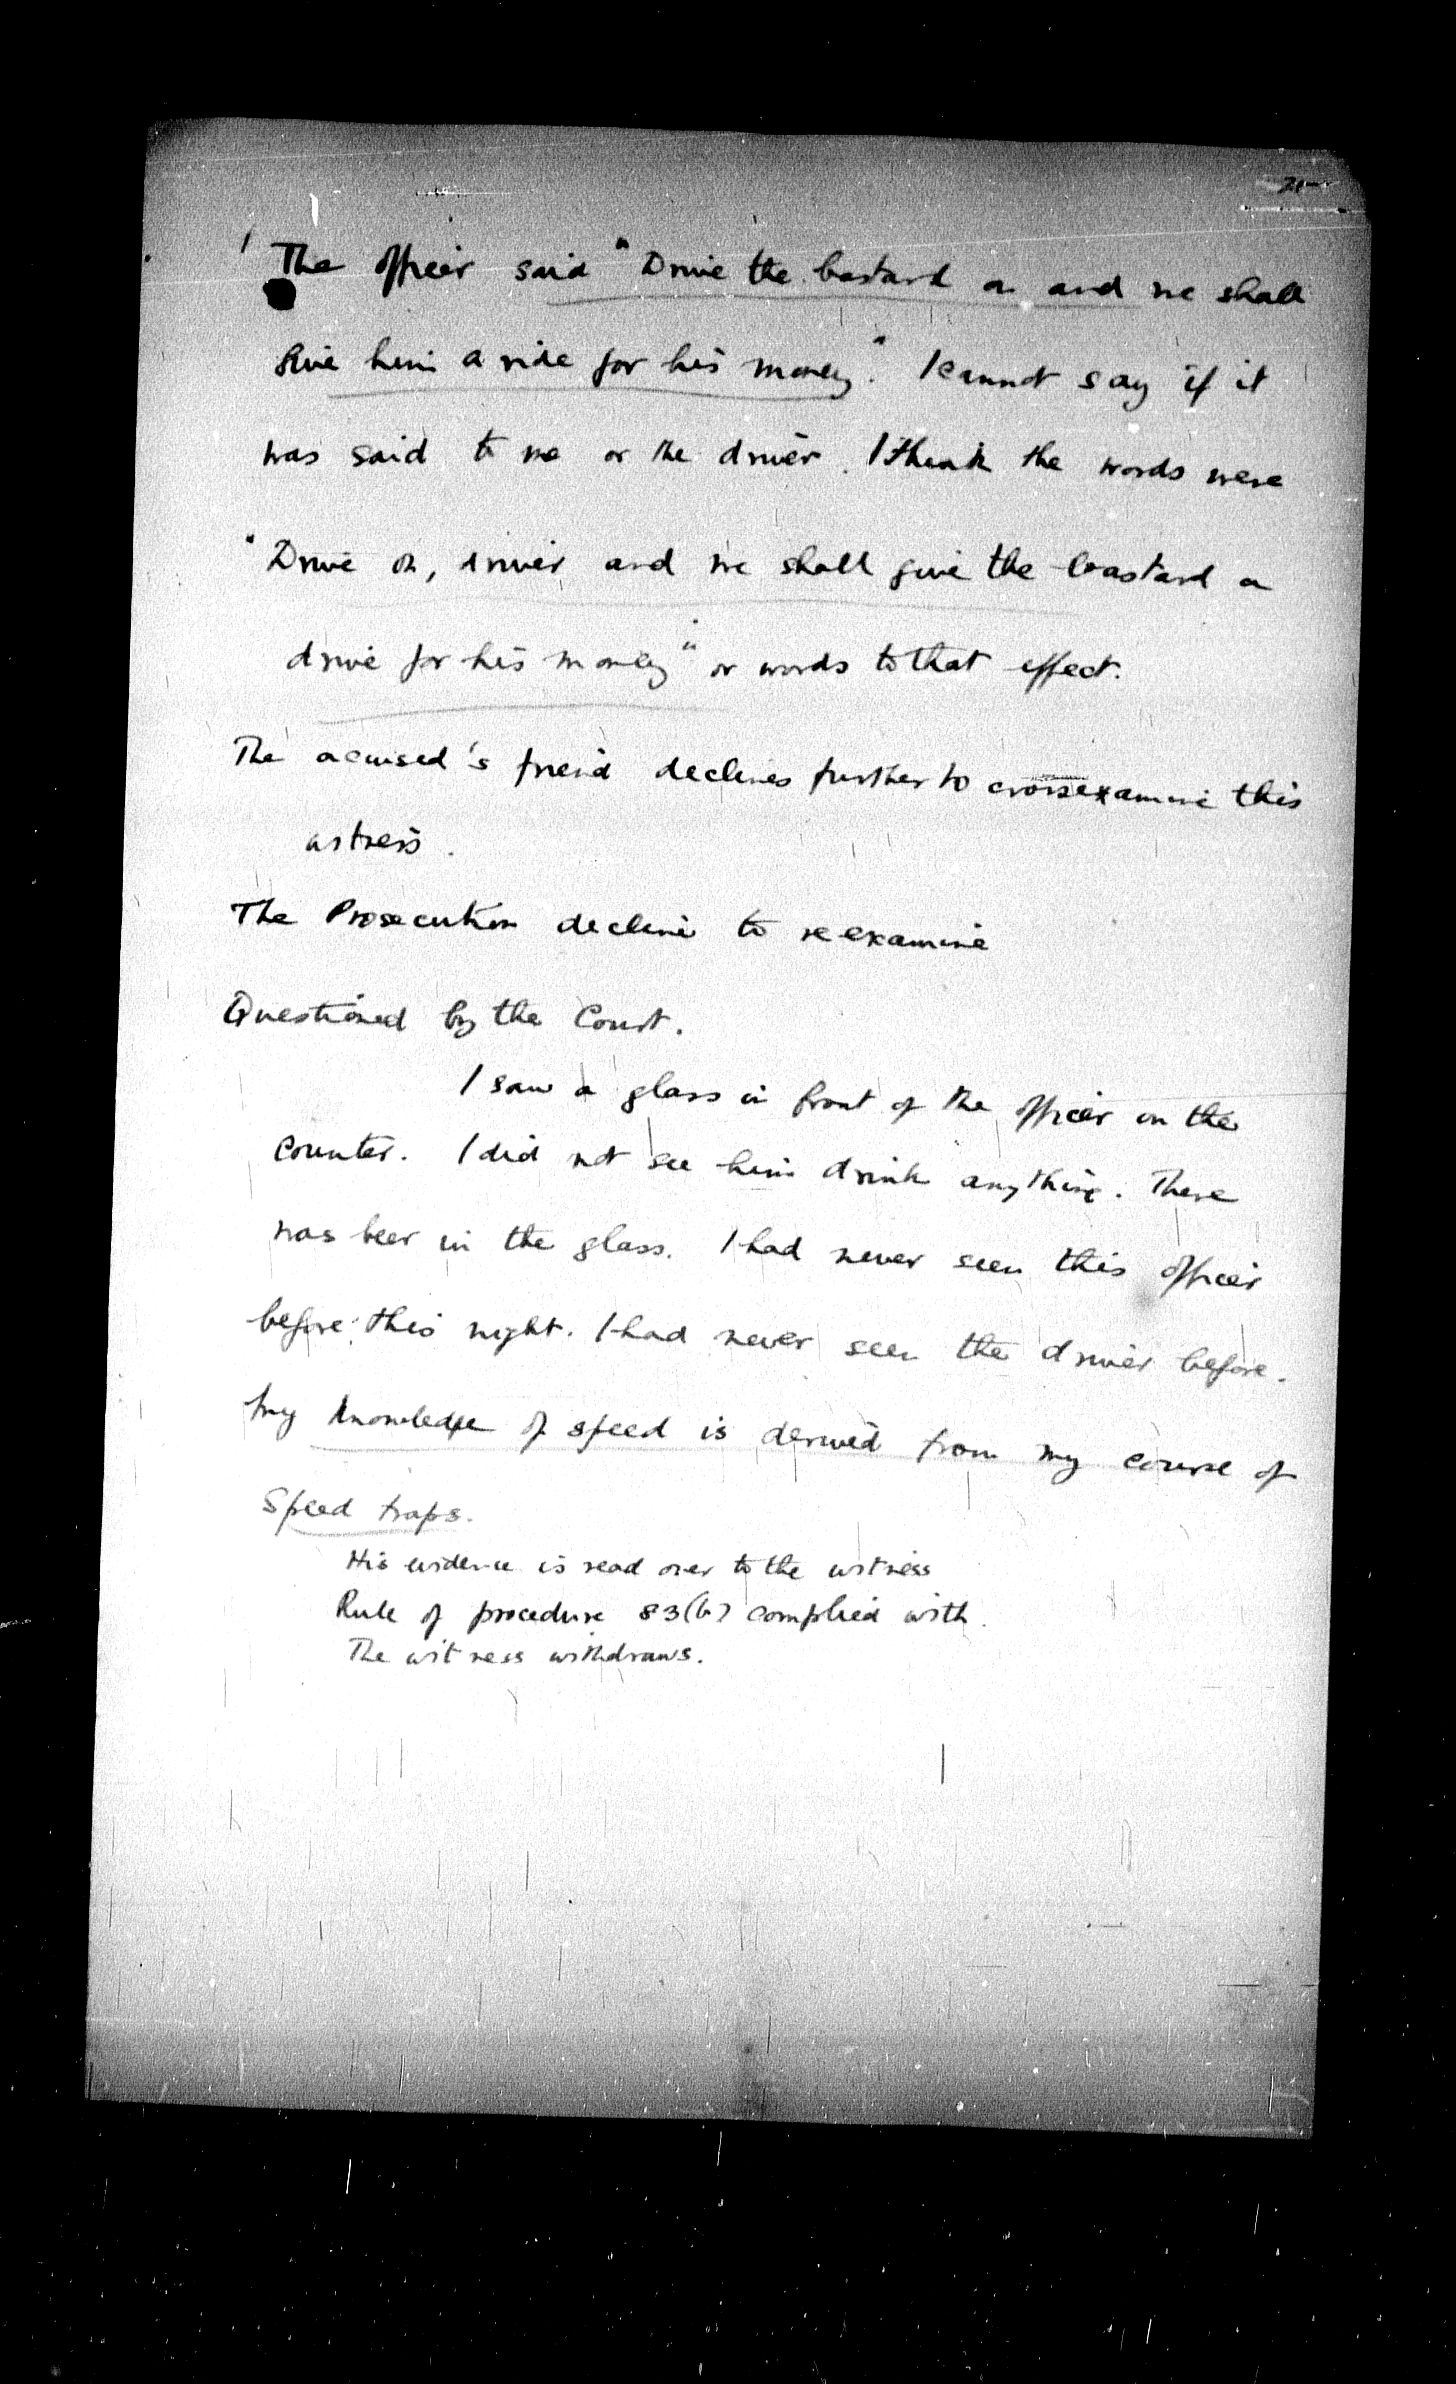 The officer said "Drive the bastard on and we shall
give him a ride for his money." I cannot say if it
was said to me or the driver. I think the words were
"Drive on, driver and we shall give the bastard a
drive for his money" or words to that effect.
The accused's friend declines further to crossexamine this
witness.
The Prosecution decline to reexamine
Questioned by the Court.
I saw a glass in front of the officer on the
counter. I did not see him drink anything. There
was beer in the glass. I had never seen this officer
before this night. I had never seen the driver before.
My knowledge of speed is derived from my course of
Speed traps.
His evidence is read over to the witness
Rule of procedure 83(b) complied with.
The witness withdraws.